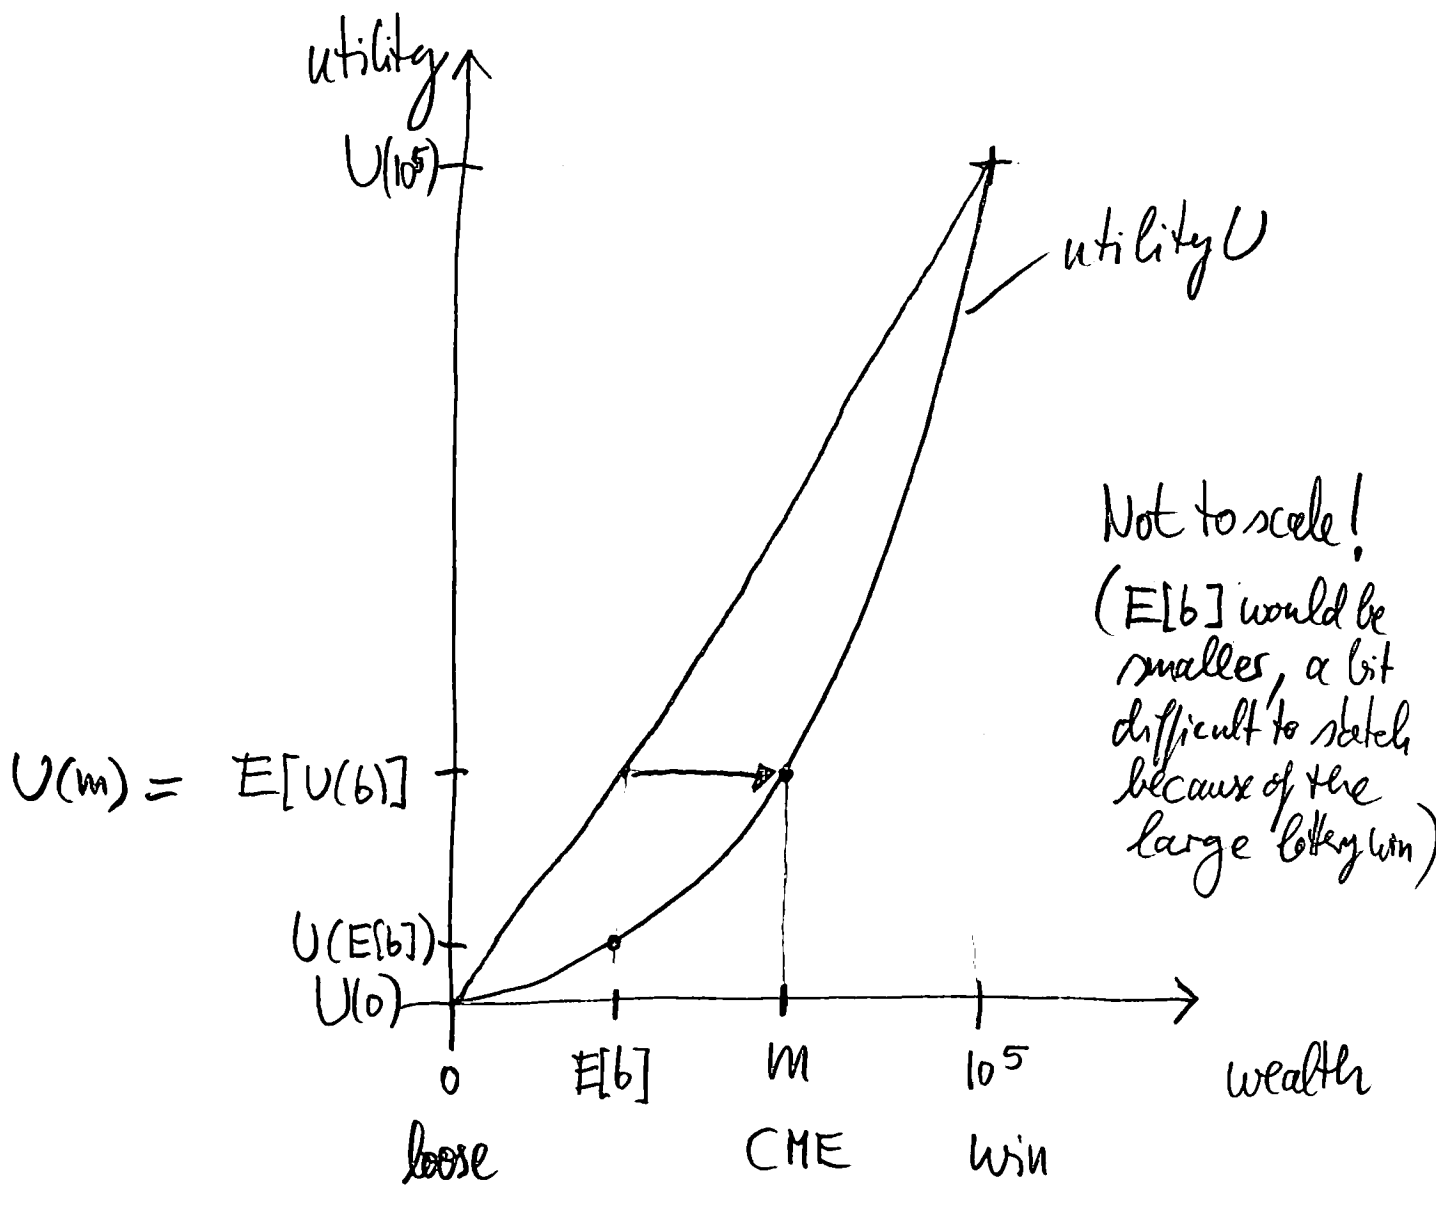 utility
U(10⁵)
utility U
Not to scale!
(E[b] would be
smaller, a bit
difficult to sketch
because of the
large lottery win)
U(m) = E[U(b)]
U(E[b])
U(0)
0 E[b] m 10⁵ wealth
loose CME win